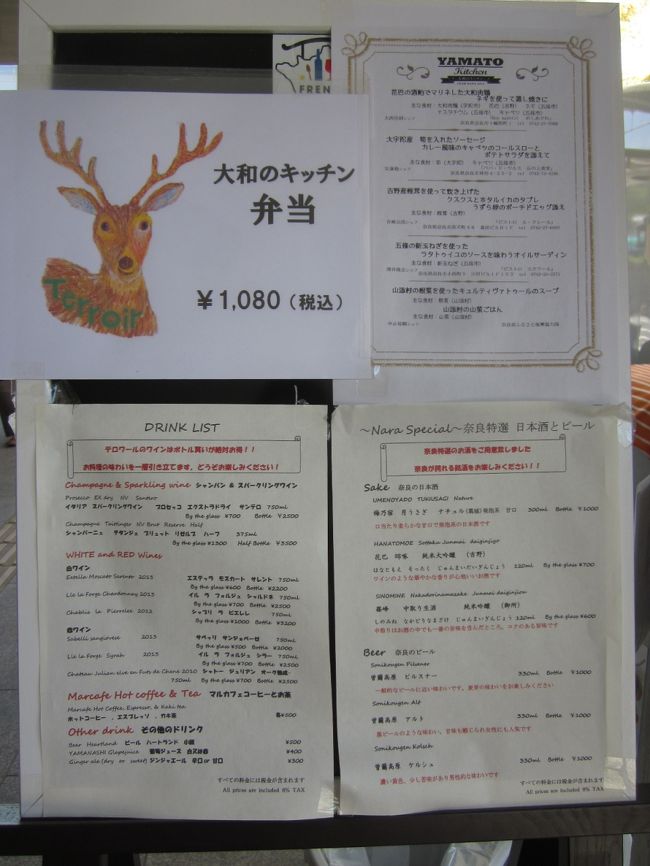 FREN
大和のキッチン
弁当
￥1,080（税込）
Terroir
YAMATO
Kitchen
花巴の酒粕でマリネした大和肉鶏
ネギを使って蒸し焼きに
大宇陀産 筍を入れたソーセージ
カレー風味のキャベツのコールスローと
ポテトサラダを添えて
吉野産椎茸を使って炊き上げた
クスクスとホタルイカのタブレ
うずら卵のポーチドエッグ添え
五條の新玉ねぎを使った
ラタトゥイユのソースを味わうオイルサーディン
山添村の根菜を使ったキュルティヴァトゥールのスープ
山添村の山菜ごはん
DRINK LIST
テロワールのワインはボトル買いが絶対お得！！
お料理の味わいを一層引き立てます。どうぞお楽しみください！
Champagne & Sparkling wine シャンパン & スパークリングワイン
Prosecco EX dry NV Santero
イタリア スパークリングワイン プロセッコ エクストラドライ サンテロ 750mL
By the glass ¥700 Bottle ¥2500
Champagne Taittinger NV Brut Reserve Half
シャンパーニュ テタンジェ ブリュット リゼルブ ハーフ 375mL
By the glass ¥1300 Half Bottle ¥3500
WHITE and RED Wines
白ワイン
Estella Moscato Saranto 2013 エステッラ モスカート サレント 750mL
By the glass ¥600 Bottle ¥2200
I'le la Forge Chardonnay 2013 イル ラ フォルジュ シャルドネ 750mL
By the glass ¥700 Bottle ¥2500
Chablis la Pierrelee 2012 シャブリ ラ ピエレレ 750mL
By the glass ¥1000 Bottle ¥3200
赤ワイン
Sabelli sangiovese 2013 サベッリ サンジョベーゼ 750mL
By the glass ¥500 Bottle ¥2000
I'le la Forge Syrah 2013 イル ラ フォルジュ シラー 750mL
By the glass ¥700 Bottle ¥2500
Chateau Julian eleve en Futs de Chene 2010 シャトー ジュリアン オーク熟成
750mL By the glass ¥700 Bottle ¥2500
Marcafe Hot coffee & Tea マルカフェコーヒーとお茶
Marcafe Hot Coffee, Espresso, & Kaki tea
ホットコーヒー ，エスプレッソ ，カキ茶 各¥500
Other drink その他のドリンク
Beer Heartland ビール ハートランド 小瓶 ¥500
YAMANASHI Grapejuice 葡萄ジュース 白又は赤 ¥400
Ginger ale(dry or sweet) ジンジャエール 辛口or甘口 ¥300
すべての料金には税金が含まれます
All prices are included 8% TAX
～Nara Special～奈良特選 日本酒とビール
奈良特選のお酒をご用意致しました
奈良が誇れる銘酒をお楽しみください！！
Sake 奈良の日本酒
UMENOYADO TUKIUSAGI Nature
梅乃宿 月うさぎ ナチュル(葛城)発泡系 甘口 300mL Bottle ¥1000
口当たり柔らかな甘口で発泡系の日本酒です
HANATOMOE Sottaku Junmai daiginjyo
花巴 啐啄 純米大吟醸 （吉野）
はなともえ そったく じゅんまいだいぎんじょう 120mL By the glass ¥700
ワインのような華やかな香りが心地いいお酒です
SINOMINE Nakadorinamazake Junmai daiginjyo
篠峰 中取り生酒 純米吟醸 （御所）
しのみね なかどりなまざけ じゅんまいぎんじょう 120mL By the glass ¥600
中取りはお酒の中でも一番の旨味を含んだところ。コクのある旨味です
Beer 奈良のビール
Sonikougen Pilsener
曽爾高原 ピルスナー 330mL Bottle ¥1000
一般的なビールに近い味わいです。麦芽の味わいをお楽しみください
Sonikougen Alt
曽爾高原 アルト 330mL Bottle ¥1000
黒ビールのような味わい。甘味も感じられ女性にも人気です
Sonikougen Kolsch
曽爾高原 ケルシュ 330mL Bottle ¥1000
濃い黄色、少し苦味があり男性的な味わいです
すべての料金には税金が含まれます
All prices are included 8% TAX